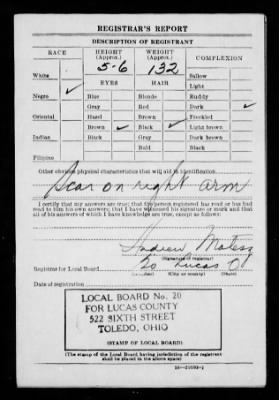 REGISTRAR'S REPORT
DESCRIPTION OF REGISTRANT
RACE HEIGHT (Approx.) WEIGHT (Approx.) COMPLEXION
5-6 132
White EYES HAIR Sallow
Light
Negro ✓ Blue Blonde Ruddy
Gray Red Dark ✓
Oriental Hazel Brown Freckled
Brown ✓ Black ✓ Light brown
Indian Black Gray Dark brown
Bald Black
Filipino
Other obvious physical characteristics that will aid in identification
Scar on right arm
I certify that my answers are true; that the person registered has read or has had
read to him his own answers; that I have witnessed his signature or mark and that
all of his answers of which I have knowledge are true, except as follows:
Andrew
(Signature of registrar)
Registrar for Local Board 20 Lucas O
(Number) (City or county) (State)
Date of registration
LOCAL BOARD No. 20
FOR LUCAS COUNTY
522 SIXTH STREET
TOLEDO, OHIO
(STAMP OF LOCAL BOARD)
(The stamp of the Local Board having jurisdiction of the registrant
shall be placed in the above space)